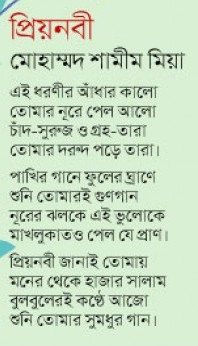 প্রিয়নবী
মোহাম্মদ শামীম মিয়া
এই ধরণীর আঁধার কালো
তোমার নূরে পেল আলো
চাঁদ-সুরুজ ও গ্রহ-তারা
তোমার দরূদ পড়ে তারা।
পাখির গানে ফুলের ঘ্রাণে
শুনি তোমারই গুণগান
নূরের ঝলকে এই ভুলোকে
মাখলুকাতও পেল যে প্রাণ।
প্রিয়নবী জানাই তোমায়
মনের থেকে হাজার সালাম
বুলবুলেরই কণ্ঠে আজো
শুনি তোমার সুমধুর গান।